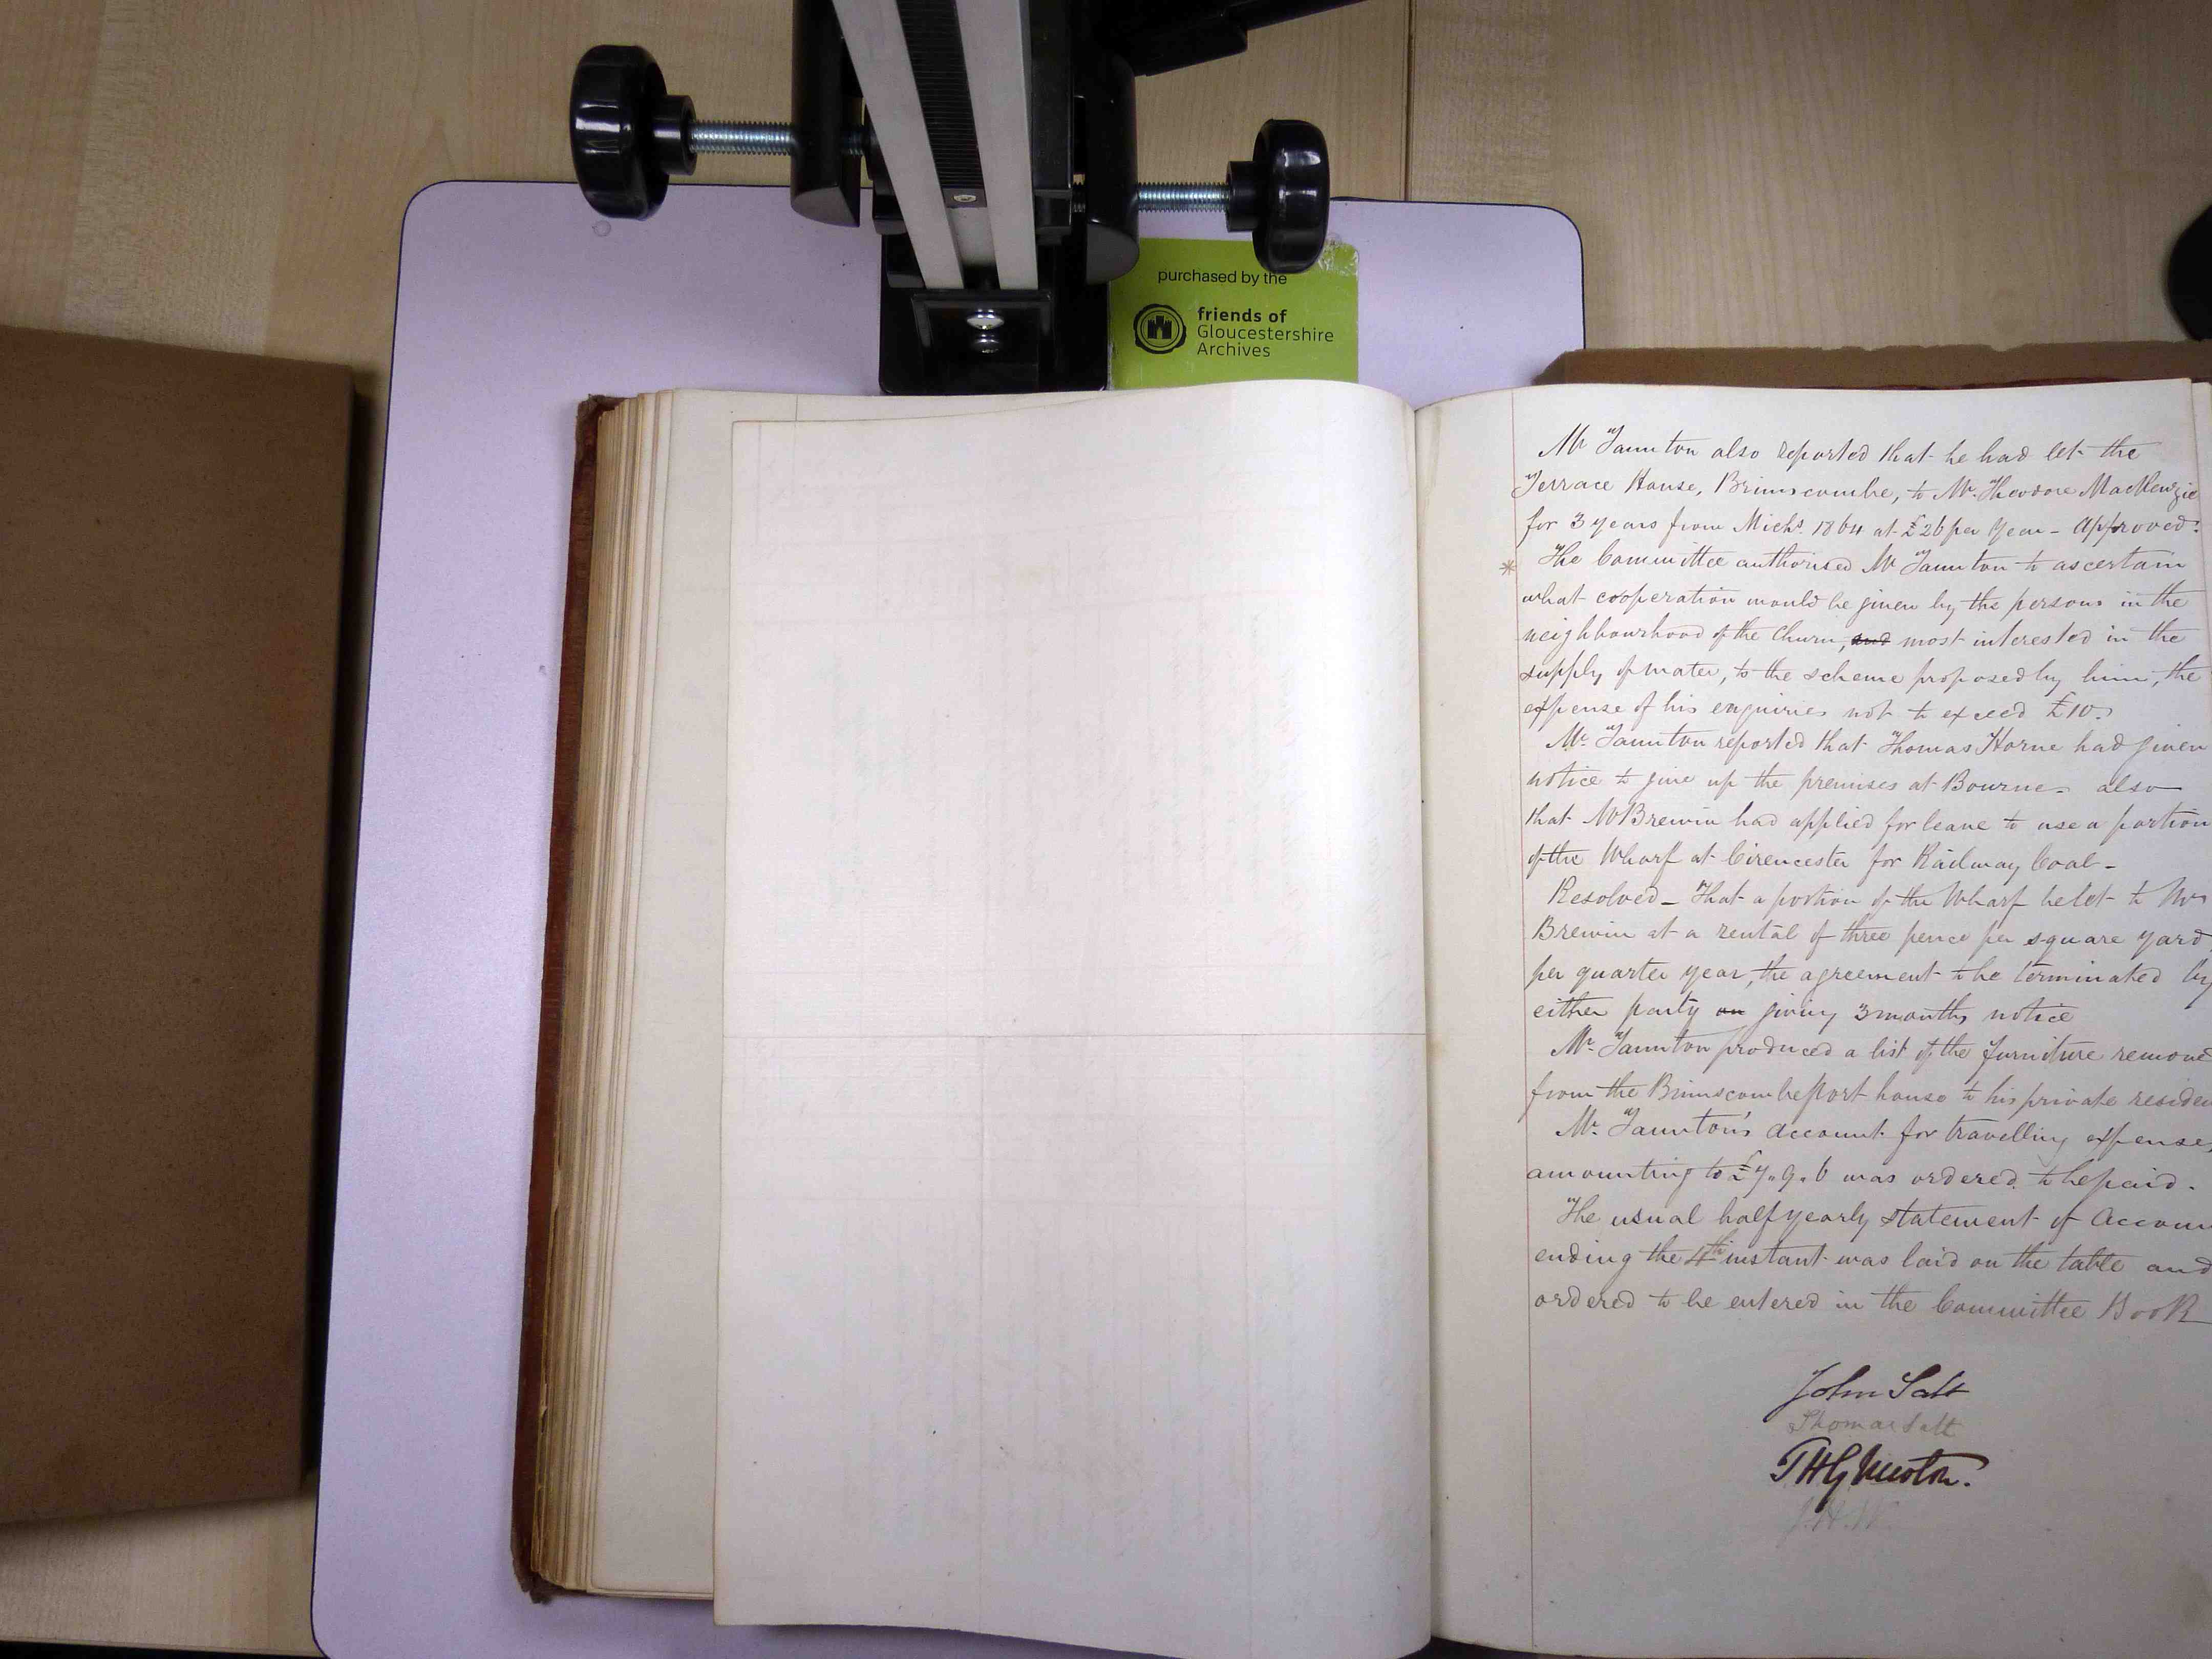 purchased by the
friends of
Gloucestershire
Archives
Mr Taunton also reported that he had let the
Terrace House, Brimscombe, to Mr. Theodore MacKenzie
for 3 years from Michs. 1864 at £26 per Year - Approved.
* The Committee authorised Mr Taunton to ascertain
what cooperation would be given by the persons in the
neighbourhood of the Churn, and most interested in the
supply of water, to the scheme proposed by him, the
expense of his enquiries not to exceed £10.
Mr. Taunton reported that Thomas Horne had given
notice to give up the premises at Bourne - also
that Mr Brewin had applied for leave to use a portion
of the Wharf at Cirencester for Railway Coal -
Resolved - That a portion of the Wharf be let to Mr
Brewin at a rental of three pence per square yard
per quarter year, the agreement to be terminated by
either party on giving 3 months notice
Mr. Taunton produced a list of the furniture remove
from the Brimscombe Port house to his private residen
Mr. Taunton's account for travelling expense
amounting to £7.9.6 was ordered to be paid.
The usual half yearly statement of Accoun
ending the 4th instant was laid on the table and
ordered to be entered in the Committee Book
John Salt
Thomas Salt